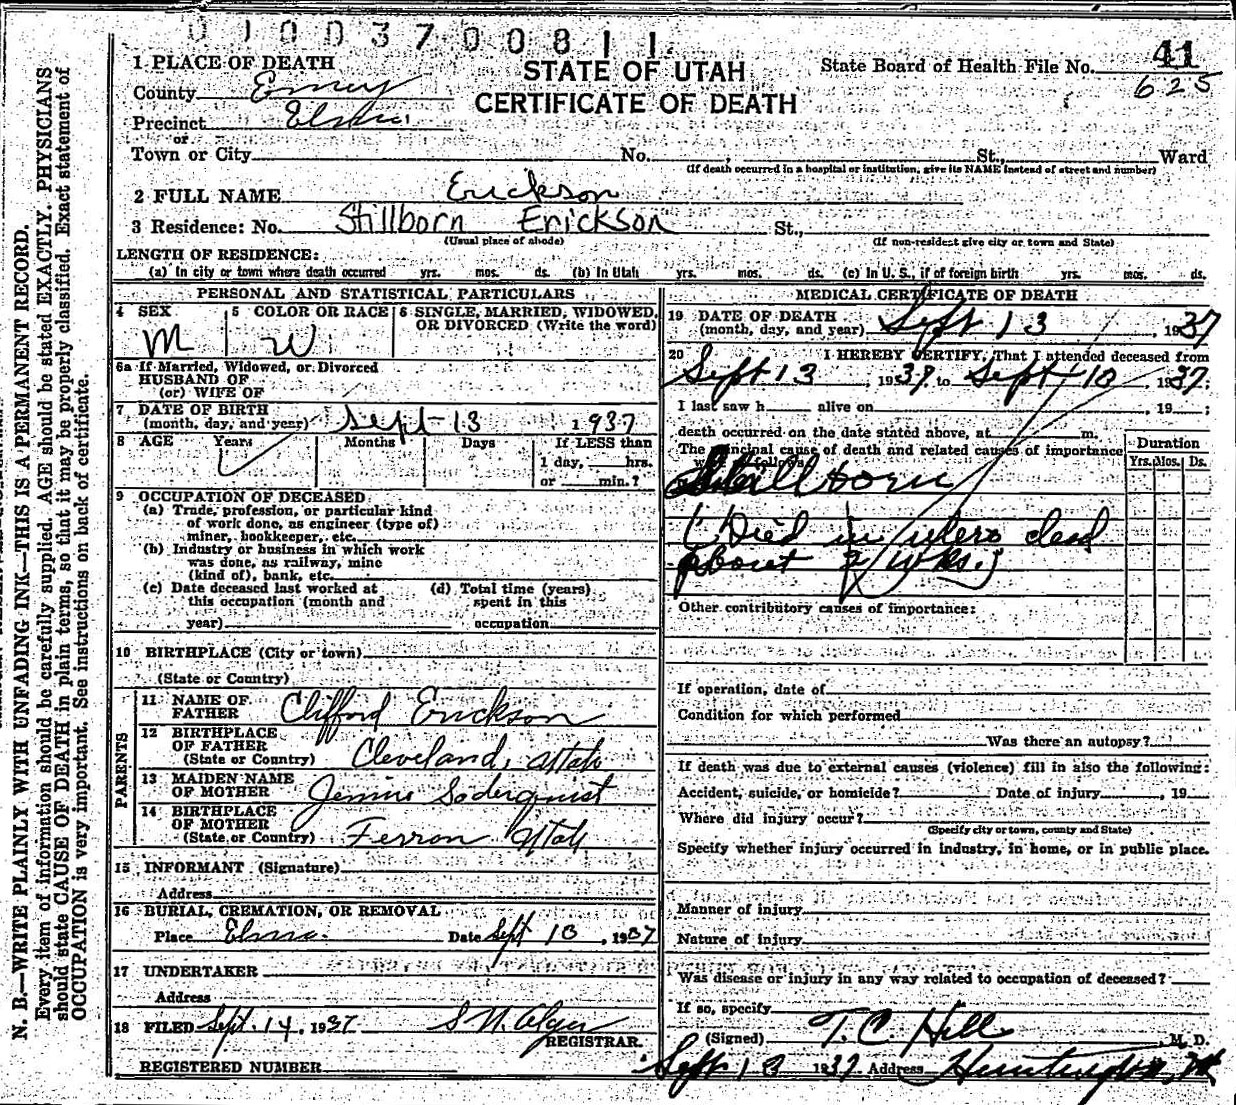 0 1 0 0 3 7 0 0 8 1 1
1 PLACE OF DEATH
STATE OF UTAH
CERTIFICATE OF DEATH
State Board of Health File No. 41
625
County Emery
Precinct
or
Town or City No. , St., Ward
(If death occurred in a hospital or institution, give its NAME instead of street and number)
2 FULL NAME Erickson
3 Residence: No. Stillborn Erickson St.,
(Usual place of abode) (If non-resident give city or town and State)
LENGTH OF RESIDENCE:
(a) In city or town where death occurred yrs. mos. ds. (b) In Utah yrs. mos. ds. (c) In U. S., if of foreign birth yrs. mos. ds.
PERSONAL AND STATISTICAL PARTICULARS
4 SEX 5 COLOR OR RACE 6 SINGLE, MARRIED, WIDOWED, OR DIVORCED (Write the word)
M W
6a If Married, Widowed, or Divorced
HUSBAND OF
(or) WIFE OF
7 DATE OF BIRTH
(month, day, and year) Sept-13 1937
8 AGE Years Months Days If LESS than
1 day, hrs.
or min.?
9 OCCUPATION OF DECEASED
(a) Trade, profession, or particular kind
of work done, as engineer (type of)
miner, bookkeeper, etc.
(b) Industry or business in which work
was done, as railway, mine
(kind of), bank, etc.
(c) Date deceased last worked at
this occupation (month and
year)
(d) Total time (years)
spent in this
occupation
10 BIRTHPLACE (City or town)
(State or Country)
PARENTS
11 NAME OF
FATHER Clifford Erickson
12 BIRTHPLACE
OF FATHER
(State or Country) Cleveland, Utah
13 MAIDEN NAME
OF MOTHER Jennie Soderquist
14 BIRTHPLACE
OF MOTHER
(State or Country) Ferron Utah
15 INFORMANT (Signature)
Address
16 BURIAL, CREMATION, OR REMOVAL
Place Elmo. Date Sept 13, 1937
17 UNDERTAKER
Address
18 FILED Sept. 14, 1937 S N. Alger
REGISTRAR.
REGISTERED NUMBER
MEDICAL CERTIFICATE OF DEATH
19 DATE OF DEATH
(month, day, and year) Sept 13 1937
20 I HEREBY CERTIFY, That I attended deceased from
Sept 13, 1937, to Sept 13, 1937;
I last saw h alive on , 19 ;
death occurred on the date stated above, at m.
The principal cause of death and related causes of importance
were as follows:
Duration
Yrs. Mos. Ds.
Stillborn
(Died in utero dead
about 2 wks.)
Other contributory causes of importance:
If operation, date of
Condition for which performed
Was there an autopsy?
If death was due to external causes (violence) fill in also the following:
Accident, suicide, or homicide? Date of injury , 19
Where did injury occur?
(Specify city or town, county and State)
Specify whether injury occurred in industry, in home, or in public place.
Manner of injury
Nature of injury
Was disease or injury in any way related to occupation of deceased?
If so, specify
(Signed) T. C. Hill, M. D.
Sept 13 1937 Address Huntington, Ut
N. B.—WRITE PLAINLY WITH UNFADING INK—THIS IS A PERMANENT RECORD.
Every item of information should be carefully supplied. AGE should be stated EXACTLY. PHYSICIANS
should state CAUSE OF DEATH in plain terms, so that it may be properly classified. Exact statement of
OCCUPATION is very important. See instructions on back of certificate.